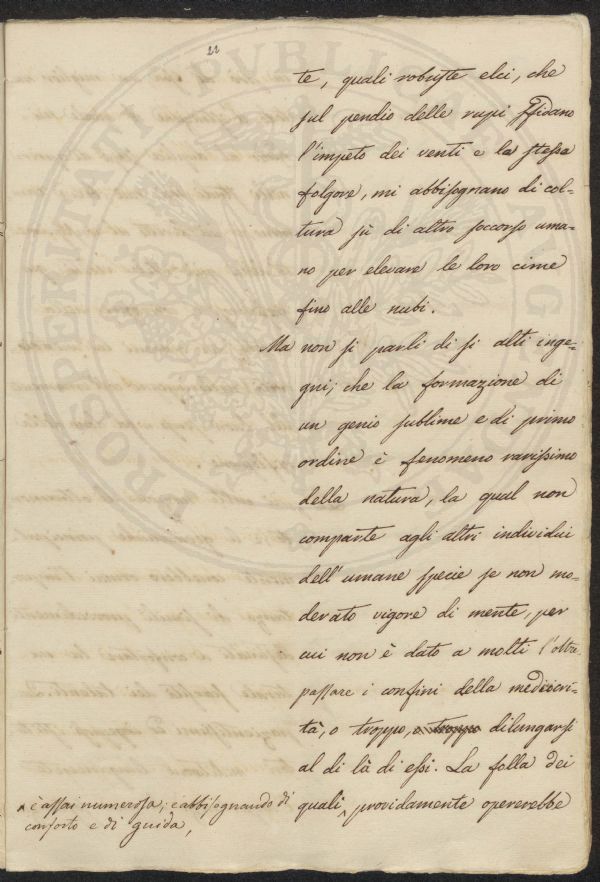 11
te, quali robuste elci, che
sul pendio delle rupi sfidano
l'impeto dei venti e la stessa
folgore, mi abbisognano di col-
tura sù di altro soccorso uma-
no per elevare le loro cime
fino alle nubi.
Ma non si parli di si alti inge-
gni; che la formazione di
un genio sublime e di primo
ordine è fenomeno rarissimo
della natura, la qual non
comparte agli altri individui
dell'umane specie se non mo-
derato vigore di mente, per
cui non è dato a molti l'oltre-
passare i confini della mediocri-
tà, o troppo, o troppo dilungarsi
al di là di essi. La folla dei
quali ^ providamente opererebbe
^ è assai numerosa; e abbisognando di
conforto e di guida,
PROSPERITATI PUBLICAE